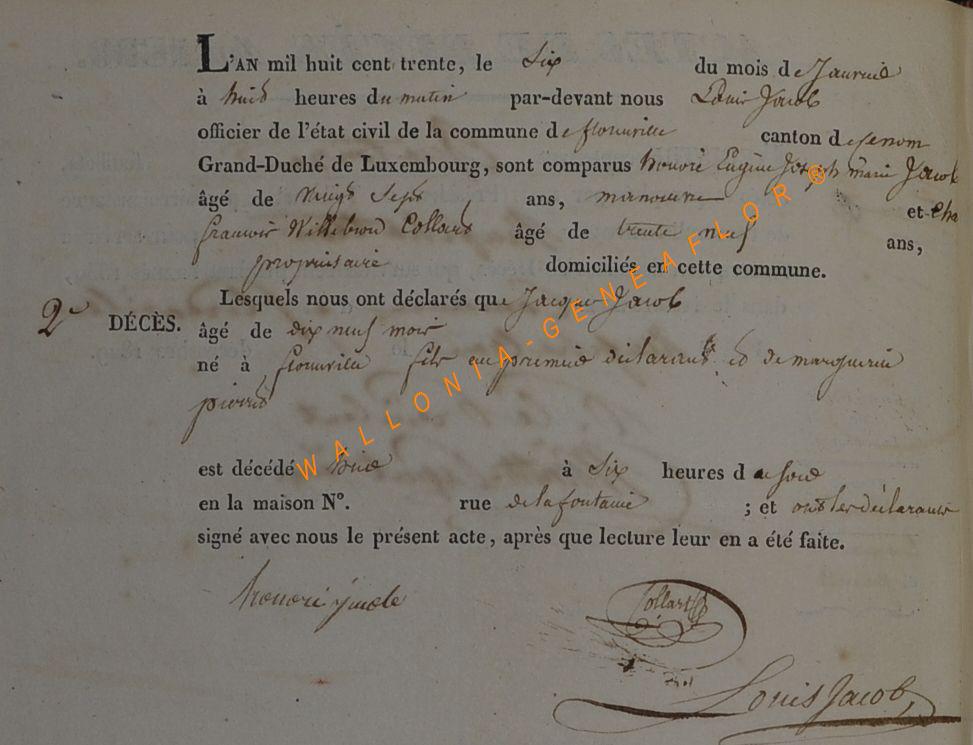 L'AN mil huit cent trente, le Six du mois de Janvier
à huit heures du matin par-devant nous Louis Jacob
officier de l'état civil de la commune de florenville canton de
Grand-Duché de Luxembourg, sont comparus honoré Eugène Joseph marie Jacob
âgé de vingt Sept ans, manoeuvre et Cha
françois Willebrord Collard âgé de trente neuf ans,
propriétaire domiciliés en cette commune.
Lesquels nous ont déclarés que Jacques Jacob
2e DÉCÈS.
âgé de dix neuf mois
né à florenville fils du premier déclarant et de marguerite
pierret
est décédé hier à Six heures du soir
en la maison N°. rue de la fontaine ; et ont les déclarants
signé avec nous le présent acte, après que lecture leur en a été faite.
honoré
Collard
Louis Jacob
WALLONIA-GENEAFLOR®